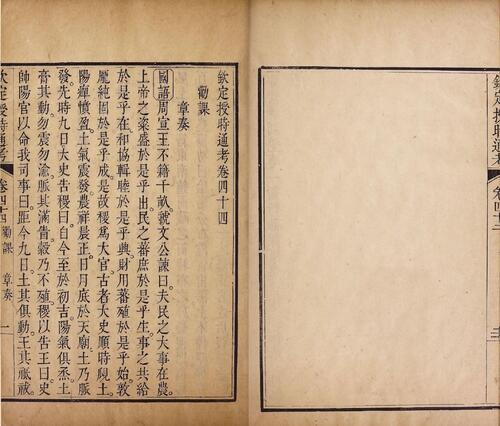 欽定授時通考卷四十四
勸課
章奏
國語周宣王不籍千畝。虢文公諫曰。夫民之大事在農。
上帝之粢盛於是乎出。民之蕃庶於是乎生。事之共給
於是乎在。和協輯睦於是乎興。財用蕃殖於是乎始。敦
龎純固於是乎成。是故稷爲大官。古者大史順時覛土。
陽癉憤盈。土氣震發。農祥晨正。日月底於天廟。土乃脈
發。先時九日。大史告稷曰。自今至於初吉。陽氣俱烝。土
膏其動。勿震勿渝。脈其滿眚。穀乃不殖。稷以告王曰。史
帥陽官以命我司事曰。距今九日。土其俱動。王其祗祓。
欽定授時通考 卷四十四 勸課 章奏 一